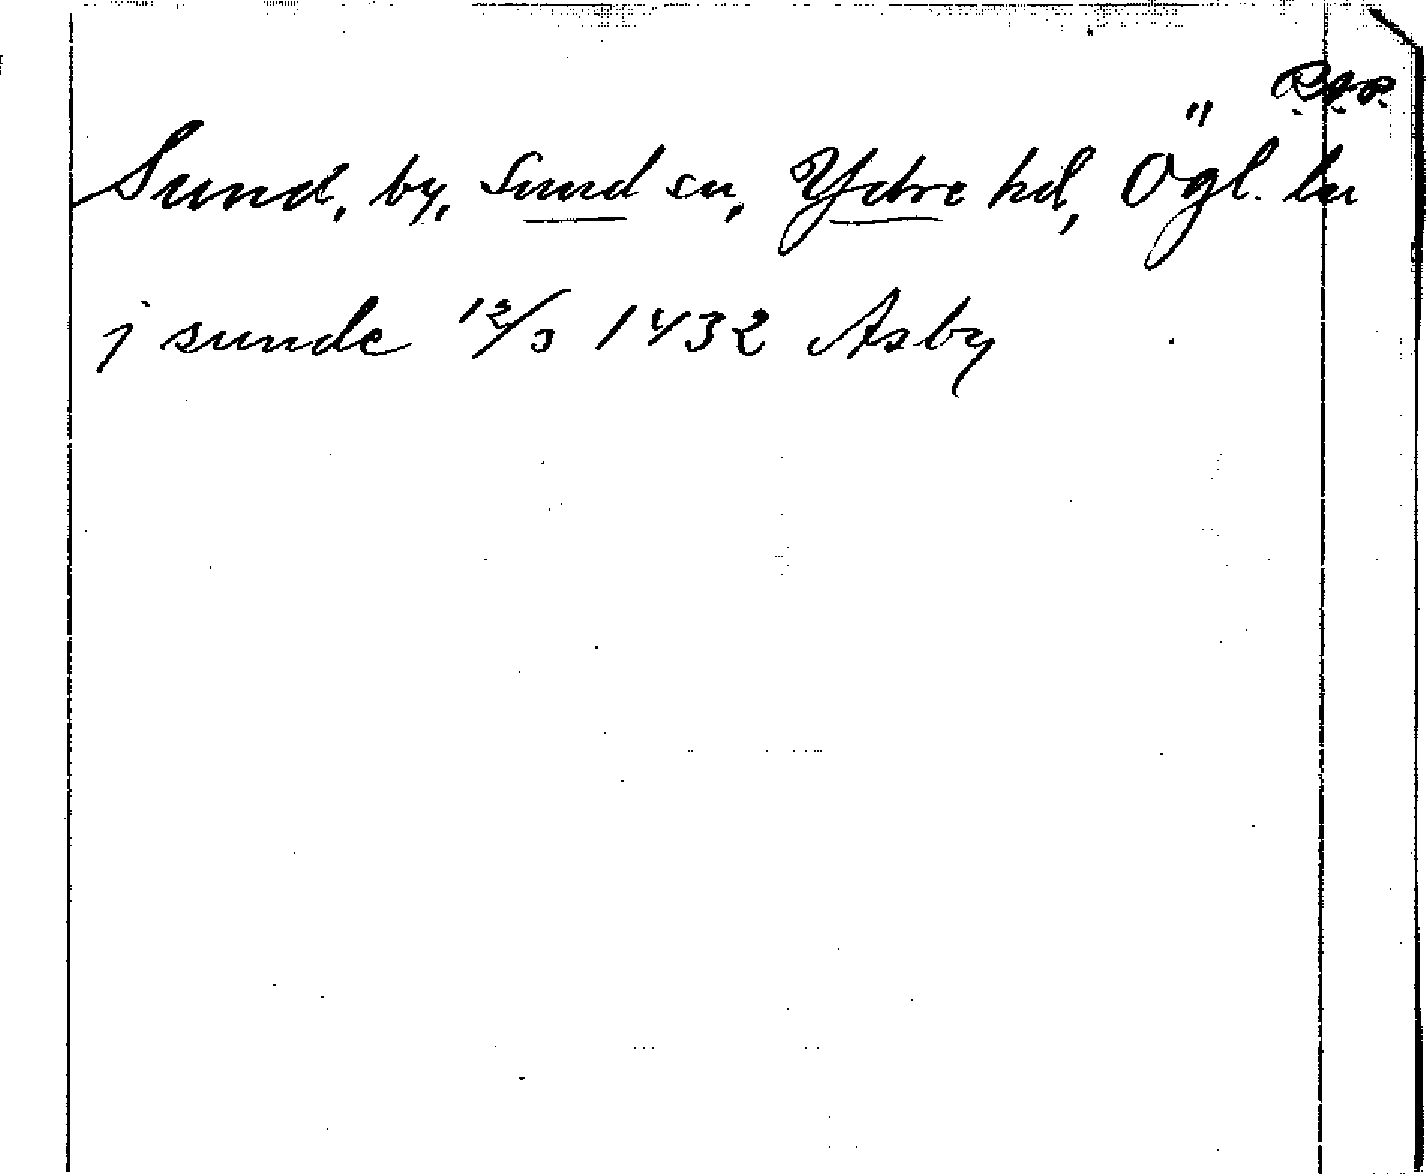 RAP.
Sund, by, Sund sn, Ydre hd, Ögl. ln
j sunde 12/3 1432 Asby